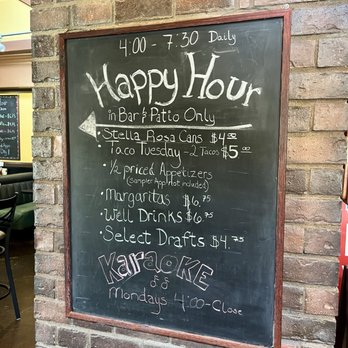 4:00 - 7:30 Daily
Happy Hour
in Bar & Patio Only
• Stella Rosa Cans $4.00
Taco Tuesday - 2 Tacos $5.00
• ½ priced Appetizers
(Sampler App Not included)
• Margaritas $6.75
• Well Drinks $6.75
• Select Drafts $4.75
Karaoke
Mondays 4:00 - Close